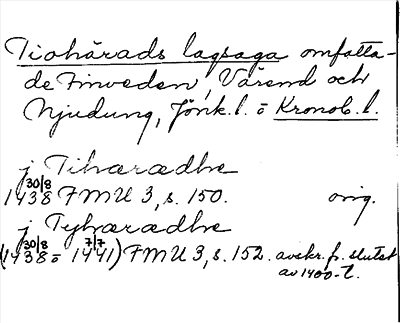 Tiohärads lagsaga omfatta-
de Finveden, Värend och
Njudung, Jönk.l. o Kronob.l.
j Tihærædhe
1438 30/8 FMU 3, s. 150. orig.
j Tyhærædhe
(1438 30/8 = 1441 7/7) FMU 3, s. 152. avskr. fr. slutet
av 1400-t.